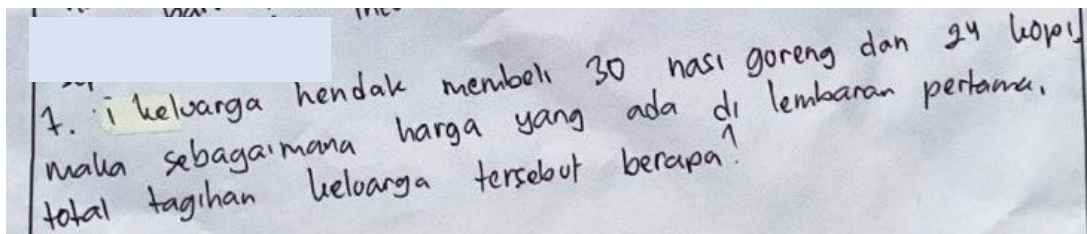 7. i keluarga hendak membeli 30 nasi goreng dan 24 kopi,
maka sebagaimana harga yang ada di lembaran pertama,
total tagihan keluarga tersebut berapa?